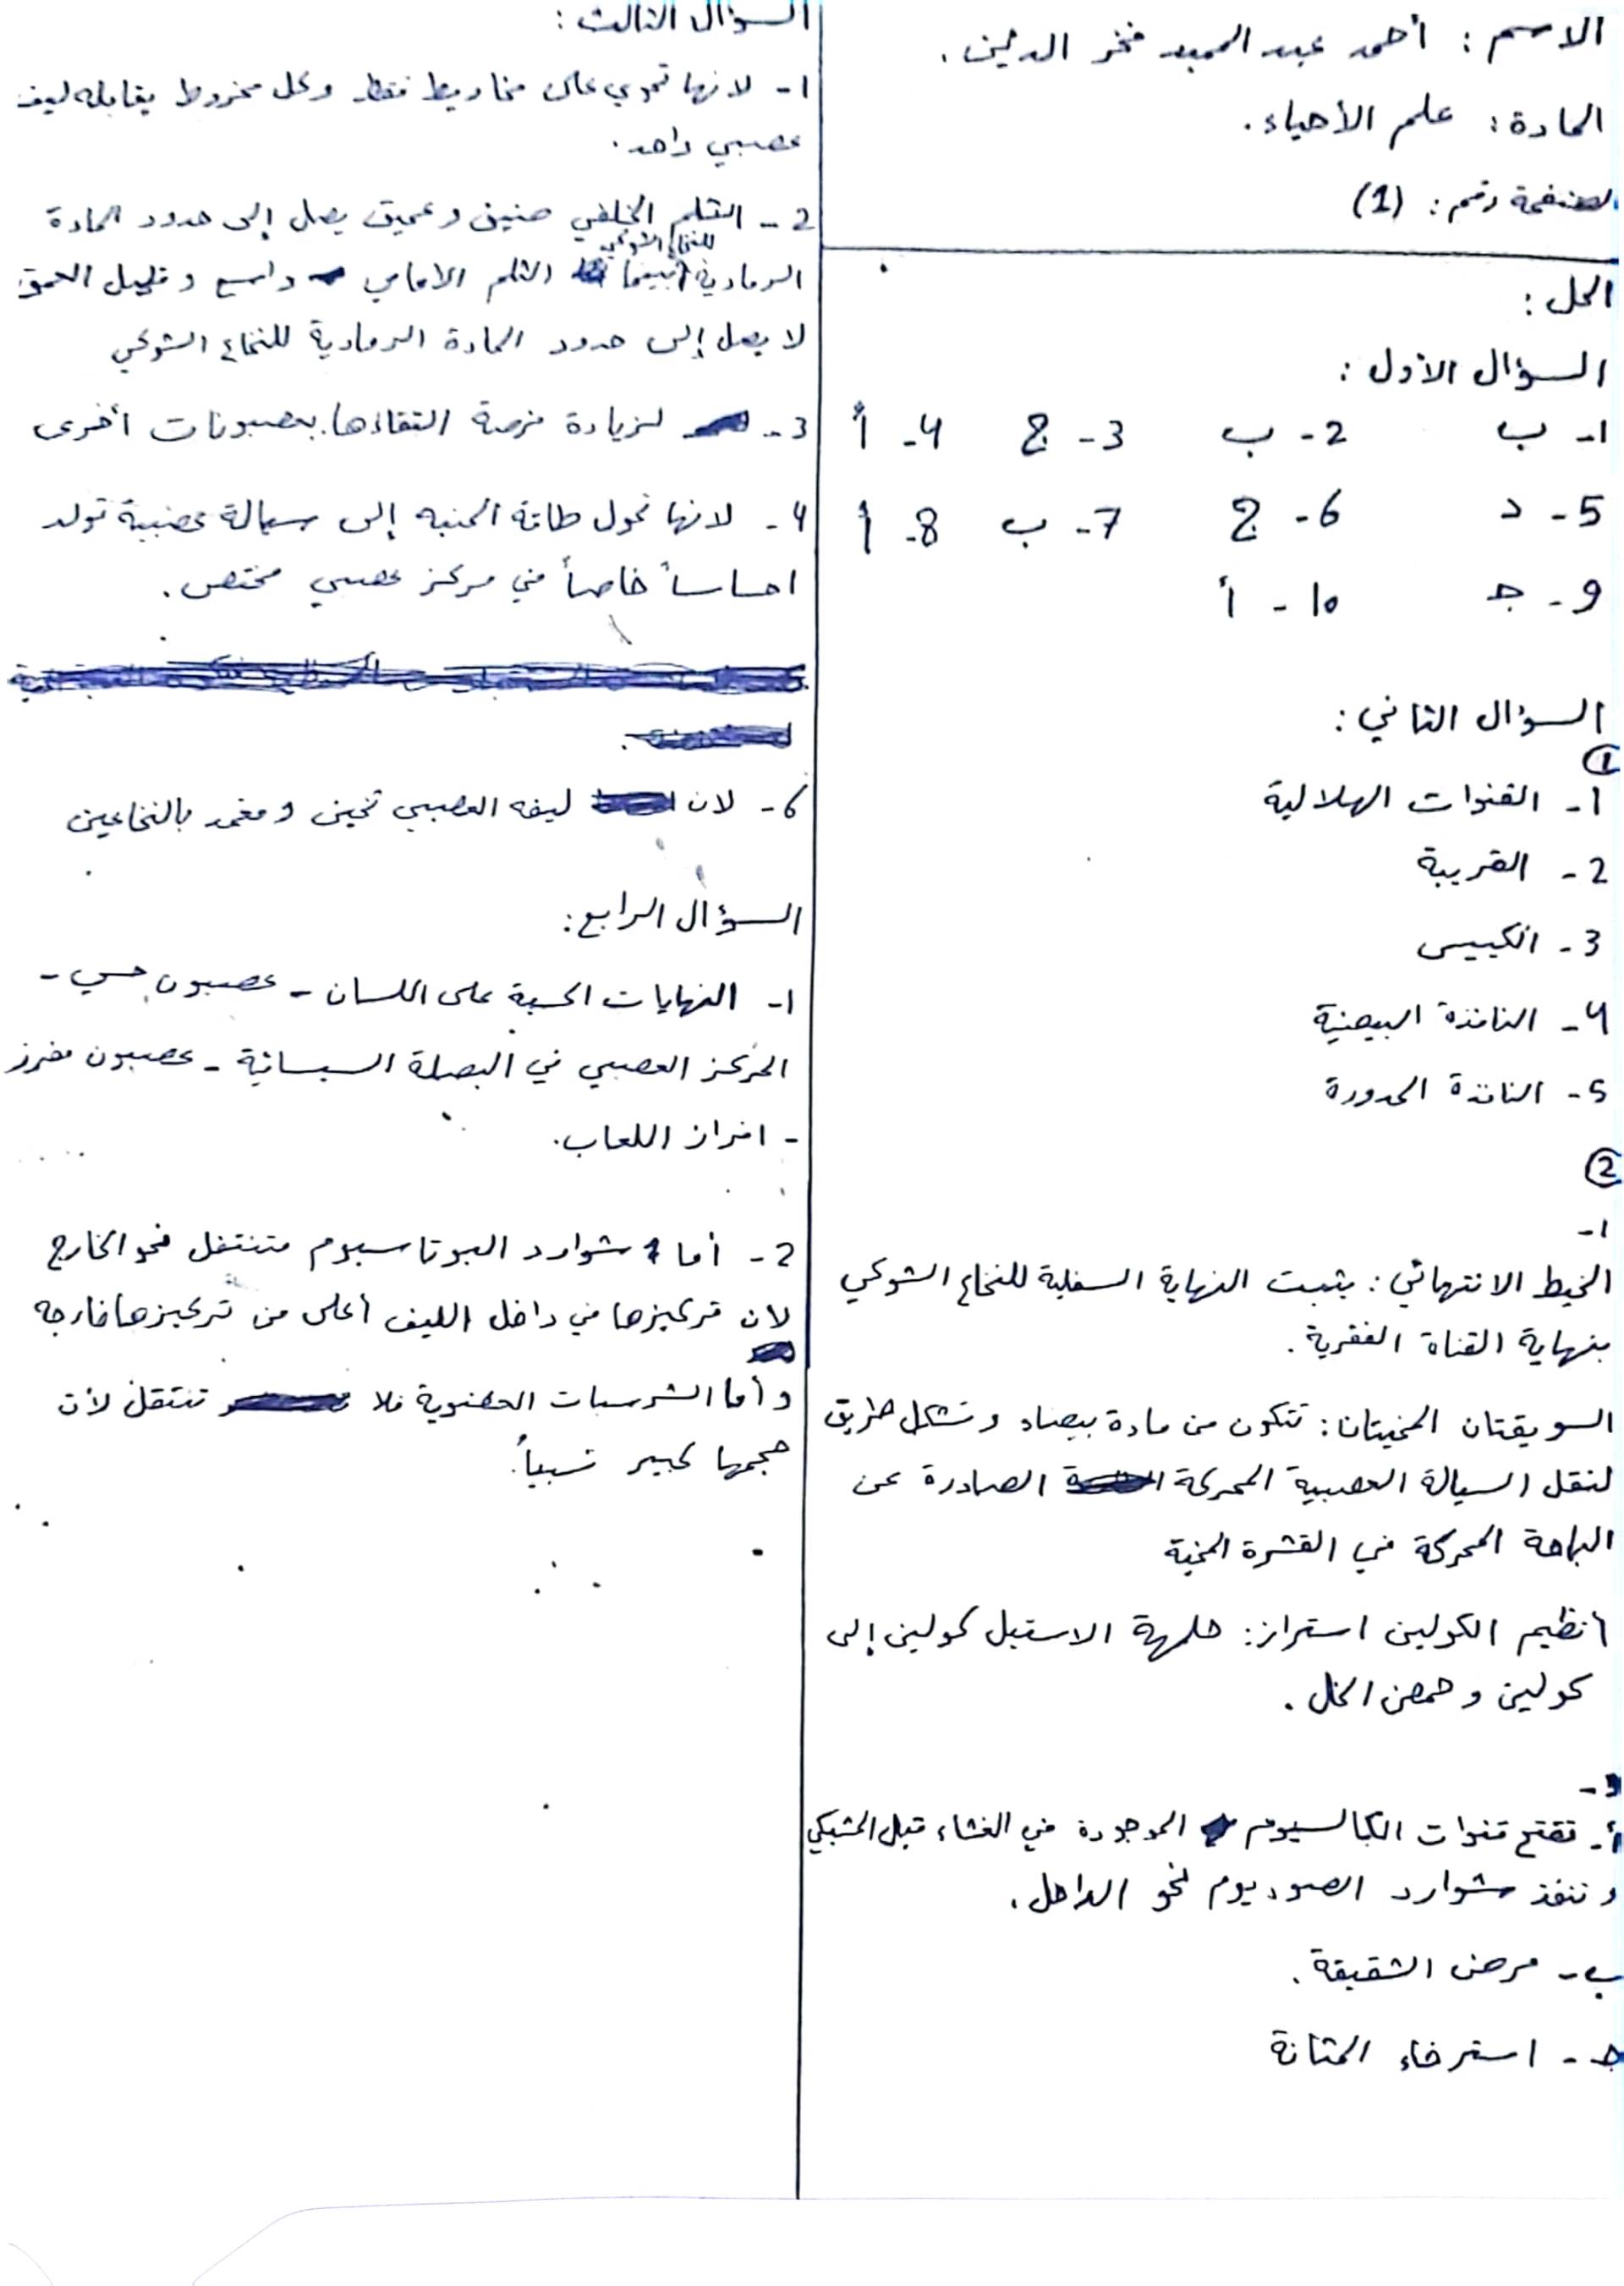 الاسم : أحمد عبد الحميد فخر الدين .
المادة : علم الأحياء .
الصفحة رقم : (1)
الحل :
السؤال الأول :
1- ب 2- ب 3- ج 4- أ
5- د 6- ج 7- ب 8- أ
9- ج 10- أ
السؤال الثاني :
①
1- القنوات الهلالية
2- القريبة
3- الكييس
4- النافذة البيضية
5- النافذة المدورة
②
1-
الخيط الانتهائي : يثبت النهاية السفلية للنخاع الشوكي
بنهاية القناة الفقرية .
السويقتان المخيتان : تتكون من مادة بيضاء وتشكل طريق
لنقل السيالة العصبية المحركة الصادرة عن
الباحة المحركة في القشرة المخية
أنظيم الكولين استراز : حلمهة الاستيل كولين إلى
كولين وحمض الخل .
أ- تفتح قنوات الكالسيوم الموجودة في الغشاء قبل المشبكي
وتنفذ شوارد الصوديوم نحو الداخل .
ب- مرض الشقيقة .
ج- استرخاء المثانة
السؤال الثالث :
1- لانها تحوي على مخاريط فقط وكل مخروط يقابله ليف
عصبي واحد .
2- الثلم الخلفي ضيق وعميق يصل إلى حدود المادة
الرمادية للنخاع الشوكي بينما الثلم الامامي واسع وقليل العمق
لا يصل إلى حدود المادة الرمادية للنخاع الشوكي
3- لزيادة فرصة التقاءها بعصبونات أخرى
4- لانها تحول طاقة المنبه إلى سيالة عصبية تولد
احساساً خاصاً في مركز عصبي مختص .
6- لان ليفه العصبي ثخين ومغمد بالنخاعين
السؤال الرابع :
1- النهايات الحسية على اللسان - عصبون حسي -
المركز العصبي في البصلة السيسائية - عصبون مفرز
- افراز اللعاب .
2- أما شوارد البوتاسيوم فتنتقل نحو الخارج
لان تركيزها في داخل الليف أعلى من تركيزها خارجه
وأما الشرسبات العضوية فلا تنتقل لأن
حجمها كبير نسبياً .